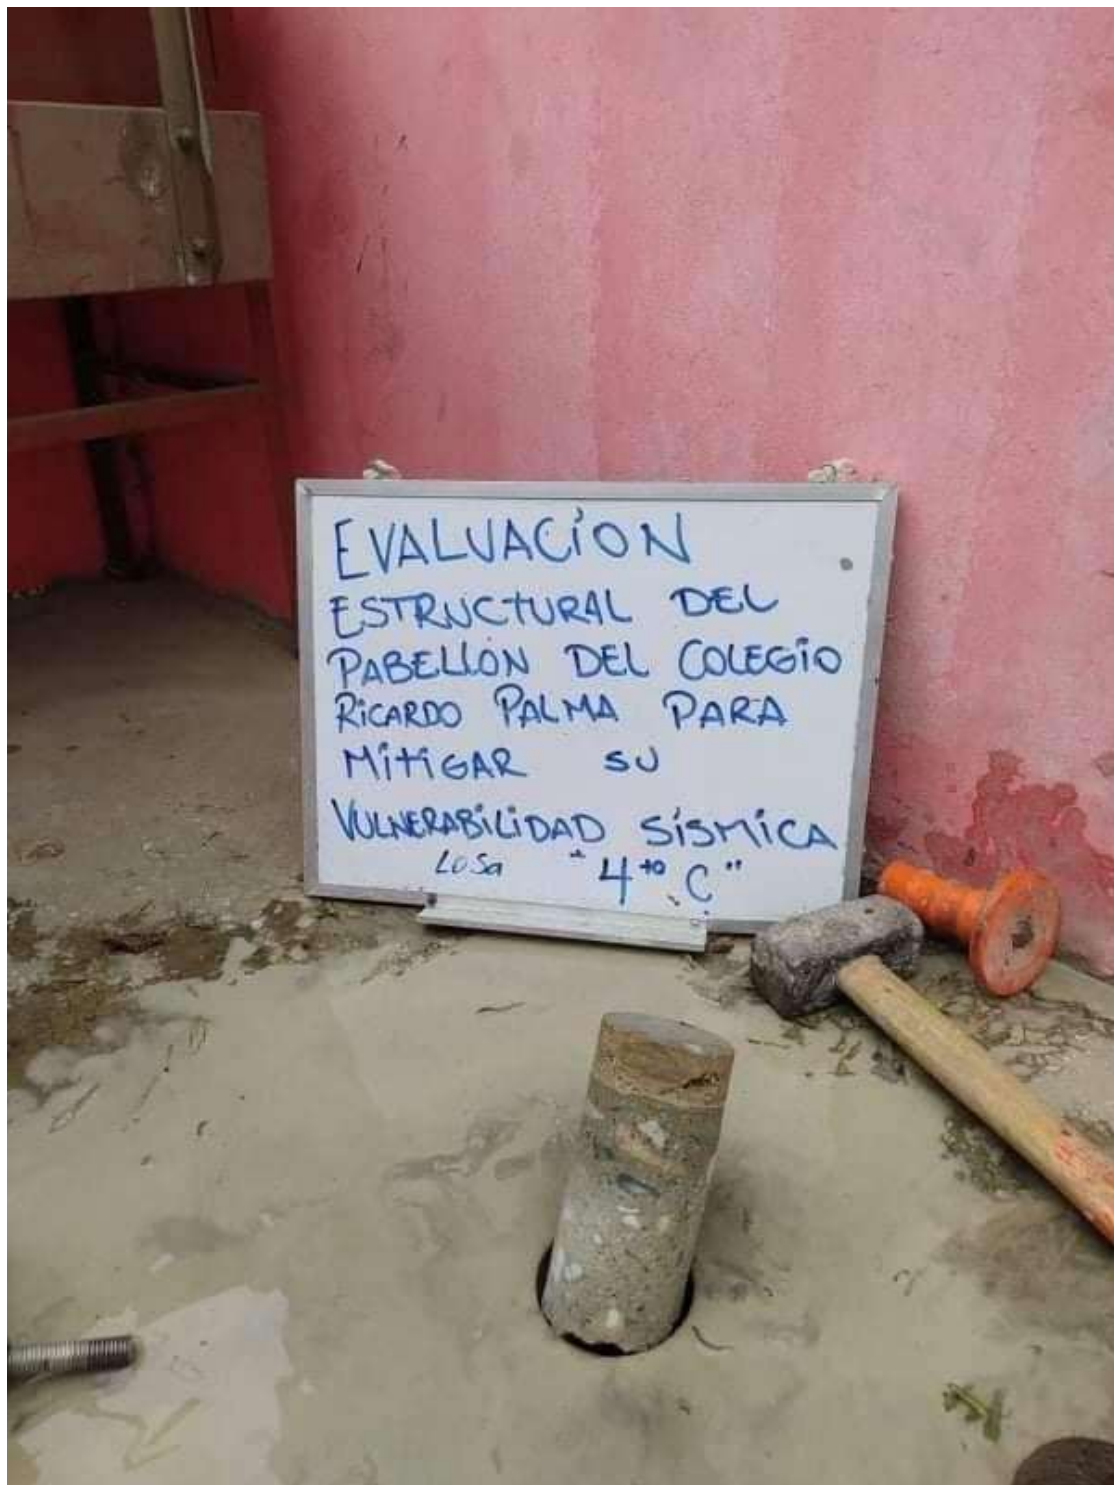 EVALUACIÓN
ESTRUCTURAL DEL
PABELLÓN DEL COLEGIO
RICARDO PALMA PARA
MITIGAR SU
VULNERABILIDAD SÍSMICA
LOSA "4to C"